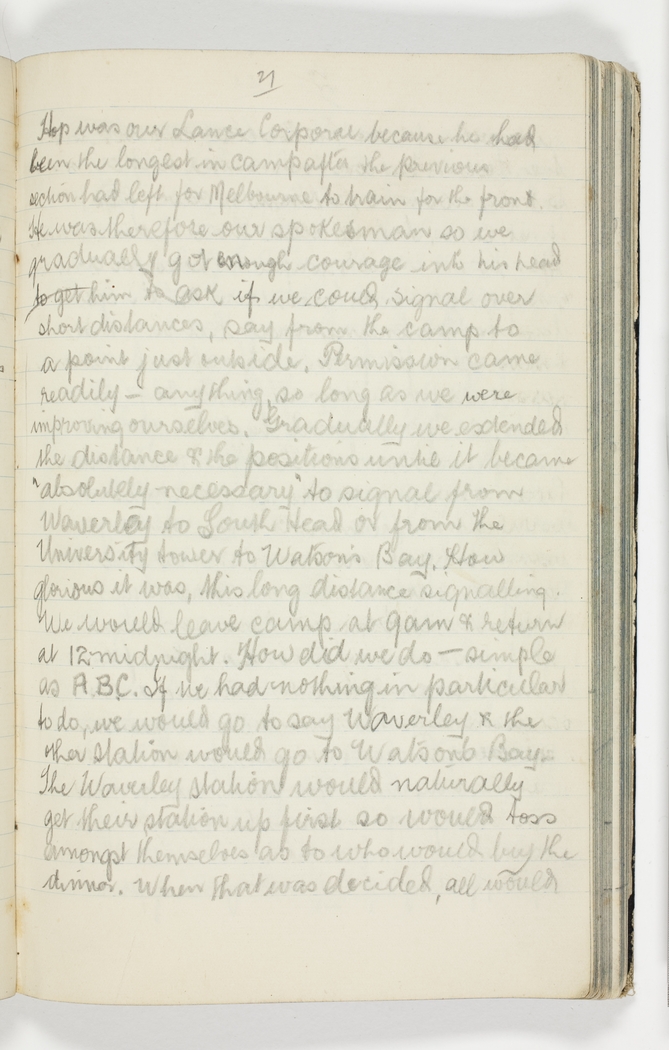 21
Hop was our Lance Corporal because he had
been the longest in camp after the previous
section had left for Melbourne to train for the front.
He was therefore our spokesman so we
gradually got enough courage into his head
to get him to ask if we could signal over
short distances, say from the camp to
a point just outside. Permission came
readily – anything, so long as we were
improving ourselves. Gradually we extended
the distance & the positions until it became
"absolutely necessary" to signal from
Waverley to South Head or from the
University tower to Watson's Bay. How
glorious it was, this long distance signalling.
We would leave camp at 9am & return
at 12 midnight. How did we do – simple
as A.B.C. If we had nothing in particular
to do, we would go to say Waverley & the
other station would go to Watson's Bay.
The Waverley station would naturally
get their station up first so would toss
amongst themselves as to who would buy the
dinner. When that was decided, all would